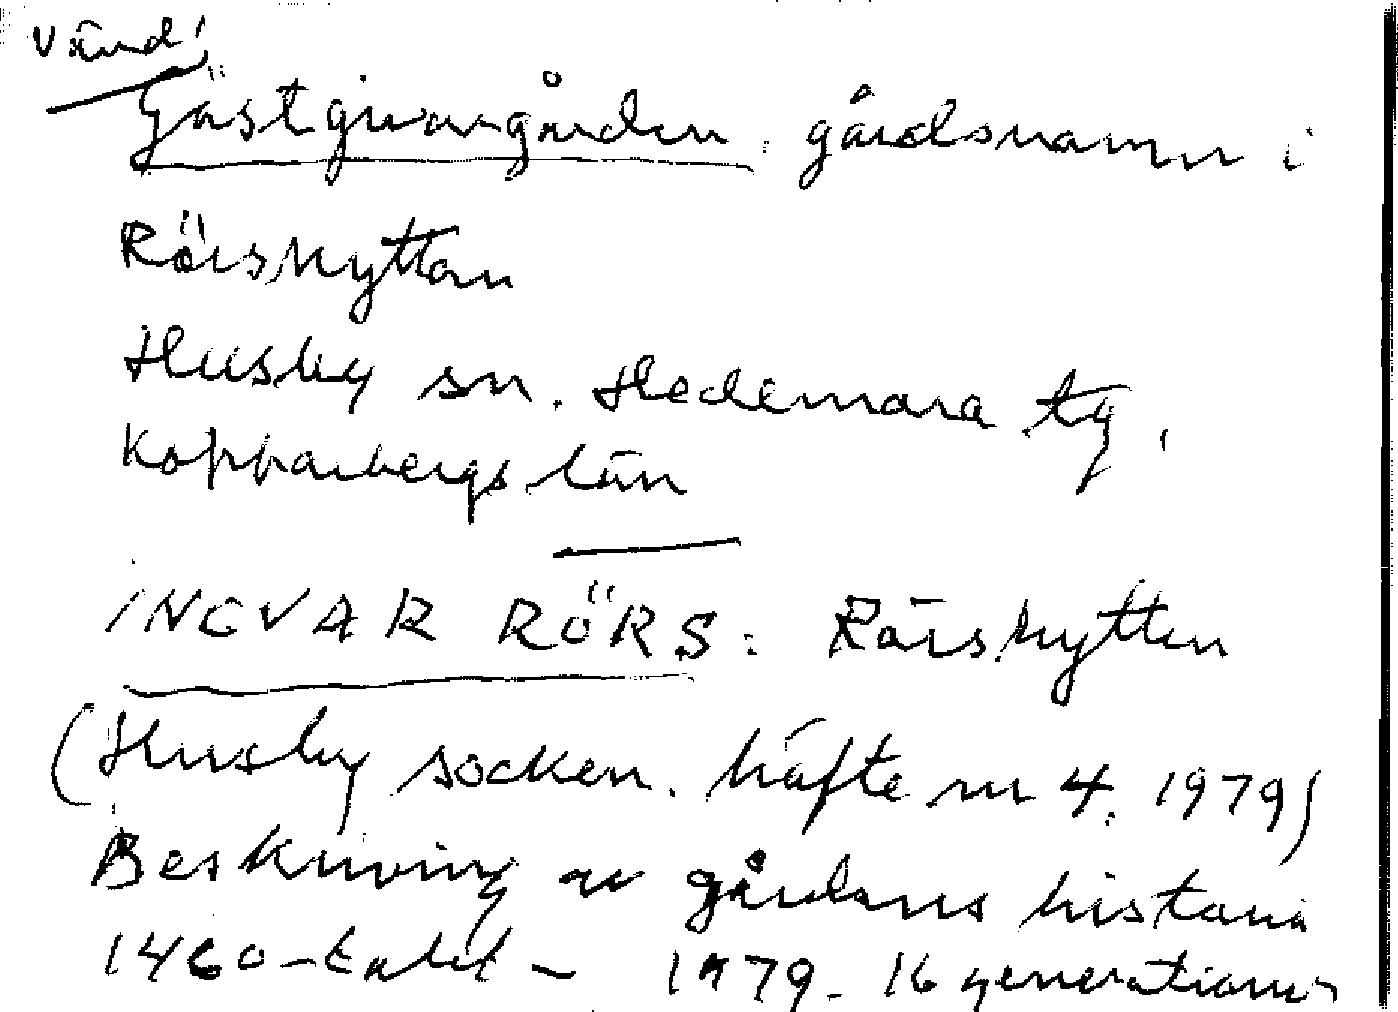 Vänd!
Gästgivaregården, gårdsnamn i
Rörshyttan
Husby sn. Hedemora tg,
Kopparbergs län
INGVAR RÖRS: Rörshyttan
(Husby socken. häfte nr 4. 1979)
Beskrivning av gårdens historia
1460-talet - 1979. 16 generationer